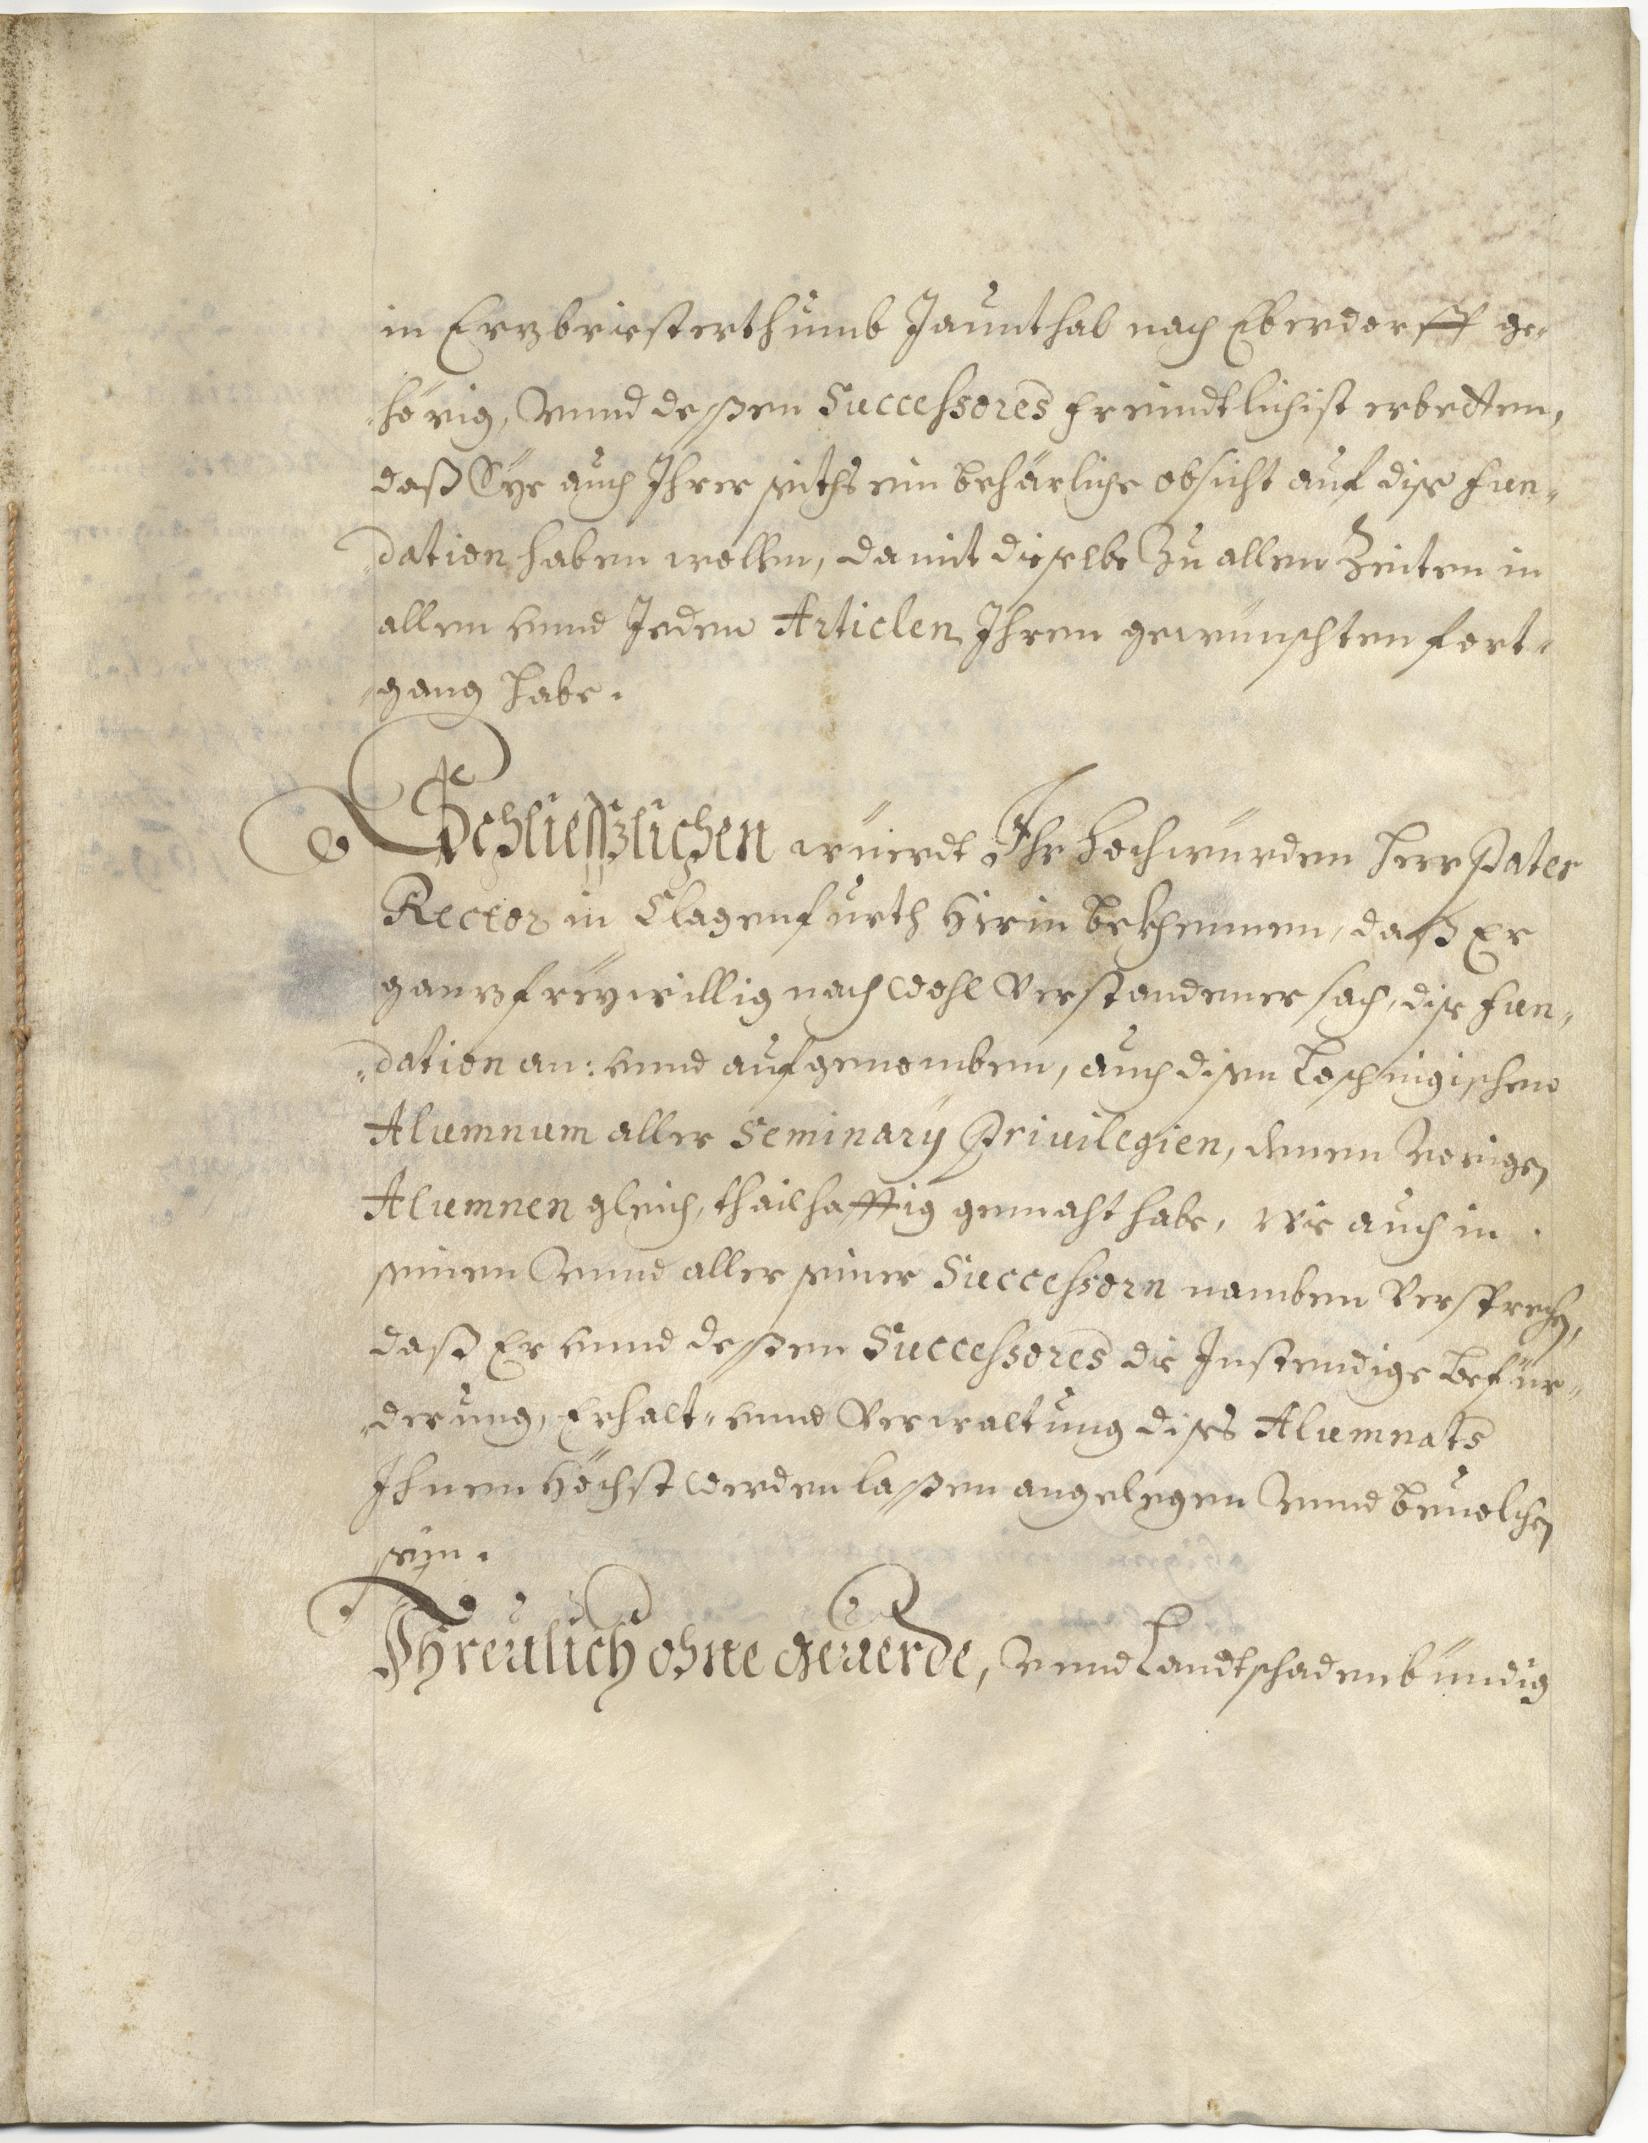 in Erzbriesterthumb Jaunthal nach Eberdorff ge-
hörig, Vnnd deßen Successores freündtlichist erbetten,
daß Sÿe auch Ihrer seiths ein behärliche obsicht auf dise Fun-
dation haben wollen, damit dieselbe Zu allen Zeiten in
allen vnnd Jeden Articlen Ihren gewünschten fort-
gang habe.
Schließlichen würdt Ihr Hochwürden Herr Pater
Rector in Clagenfurth hirin bekhennen, daß Er
ganz freÿwillig nach wohl Verstandener sach, dise Fun-
dation an: vnnd aufgenomben, auch disen Loschingischen
Alumnum aller Seminarÿ Priuilegien, denen Vorigen
Alumnen gleich, thailhafftig gemacht habe, wie auch in
seinen Vnnd aller seiner Successorn namben Versprechen,
daß Er vnnd deßen Successores die Instendige befür-
derung, Erhalt- vnnd Verwaltung dises Alumnats
Ihnen höchst werden laßen angelegen Vnnd beuolchen
seÿn.
Threulich ohne Geuerde, Vnnd Landtschadenbündig